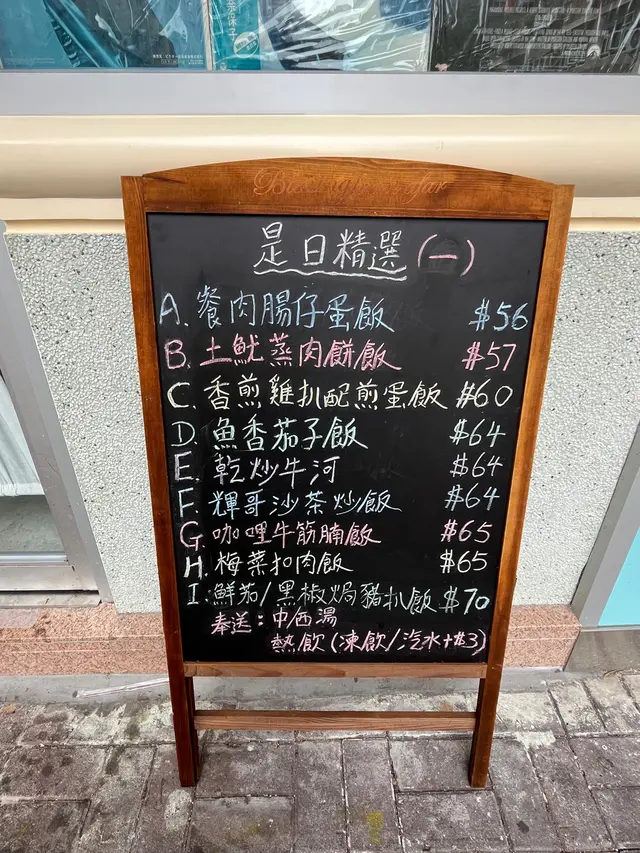 是日精選(一)
A. 餐肉腸仔蛋飯 $56
B. 土魷蒸肉餅飯 $57
C. 香煎雞扒配煎蛋飯 $60
D. 魚香茄子飯 $64
E. 乾炒牛河 $64
F. 輝哥沙茶炒飯 $64
G. 咖哩牛筋腩飯 $65
H. 梅菜扣肉飯 $65
I. 鮮茄/黑椒焗豬扒飯 $70
奉送：中西湯
熱飲(凍飲/汽水+$3)